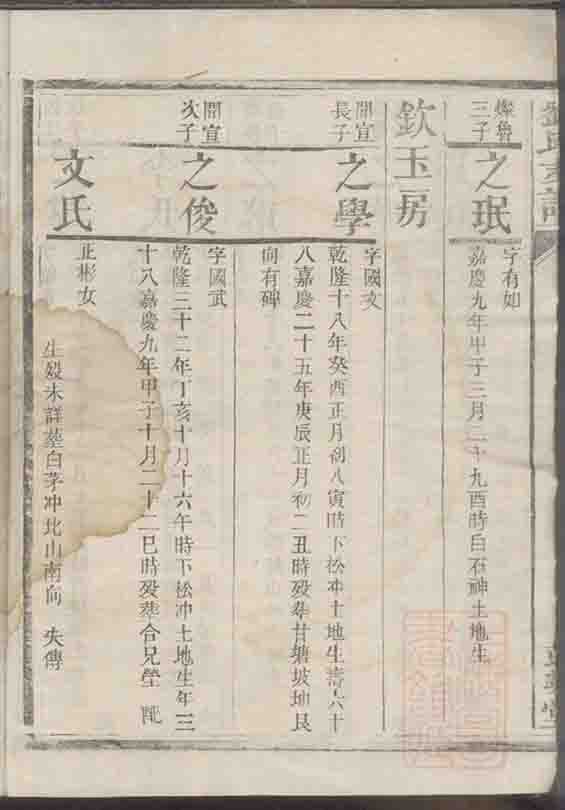 燦魯
三子
之珉
字有如
嘉慶九年甲子三月二十九酉時白石神土地生
欽玉房
開宣
長子
之學
字國文
乾隆十八年癸酉正月初八寅時下松冲土地生壽六十
八嘉慶二十五年庚辰正月初二丑時殁葬甘塘坡坤艮
向有碑
開宣
次子
之俊
字國武
乾隆三十二年丁亥十月十六午時下松冲土地生年三
十八嘉慶九年甲子十月二十二巳時殁葬合兄塋 配
文氏
正彬女
生殁未詳墓白茅冲北山南向 失傳